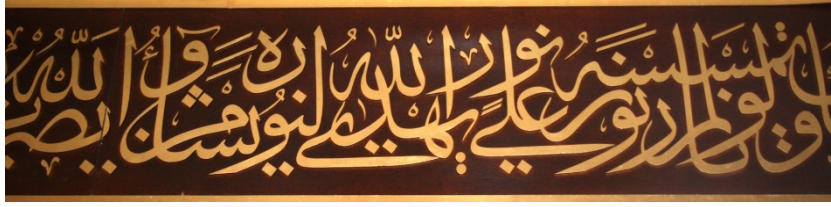 ولو لم تمسسه نار نور على نور يهدي الله لنوره من يشاء ويضرب الله